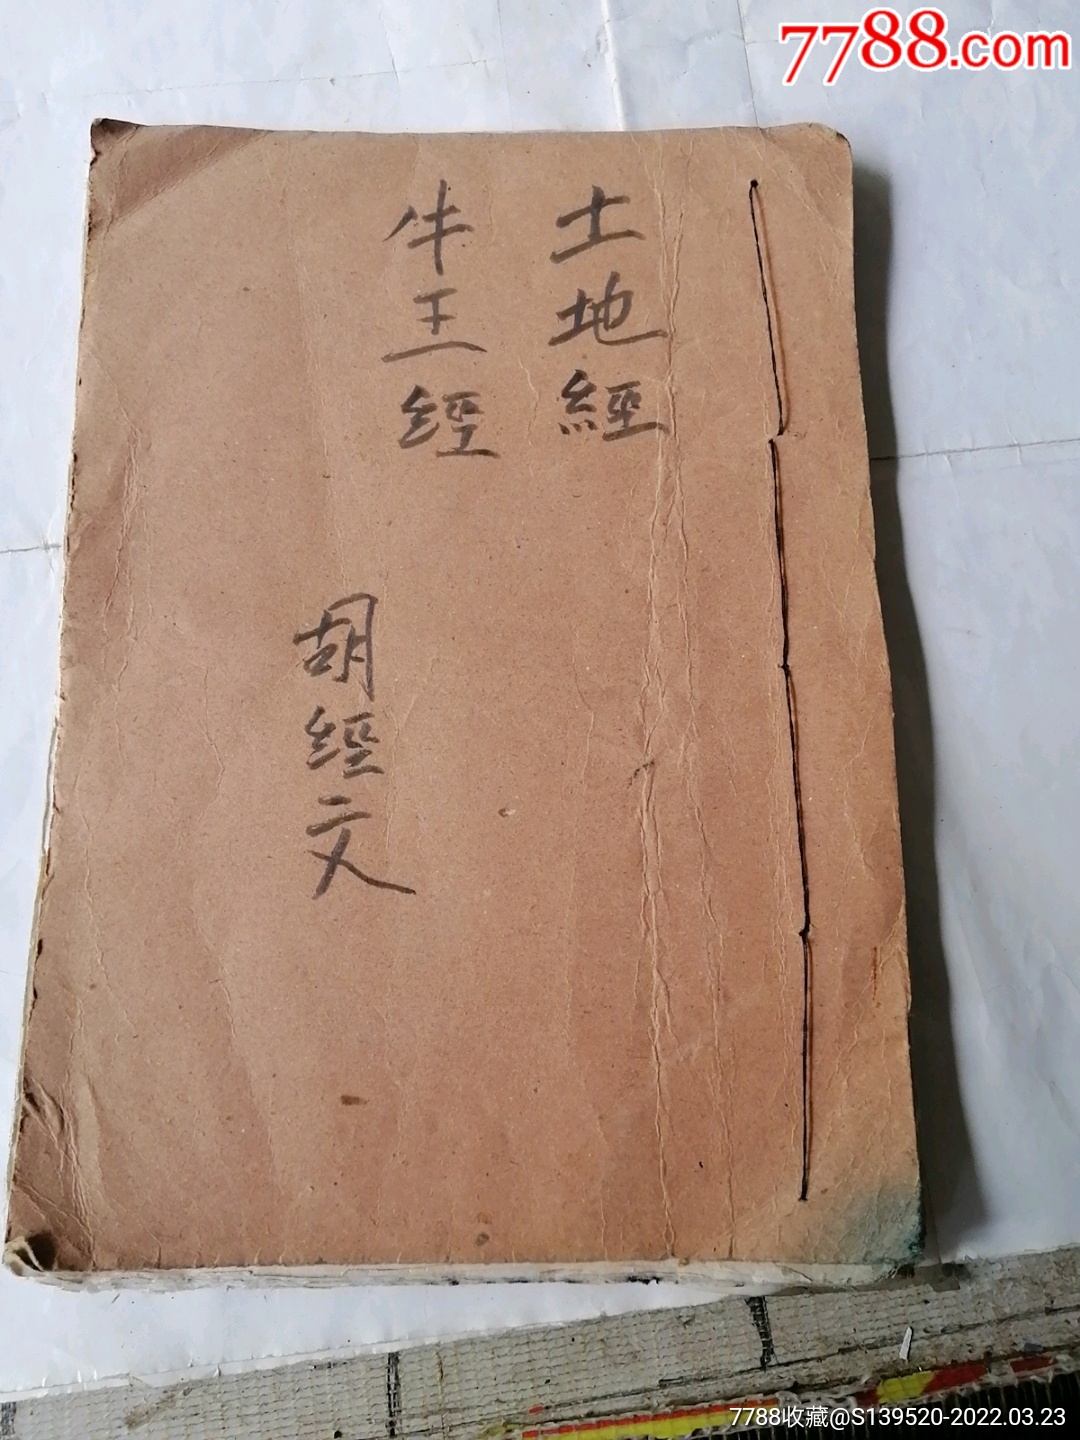 7788.com
土地經
牛王經
胡經文
7788收藏@S139520-2022.03.23